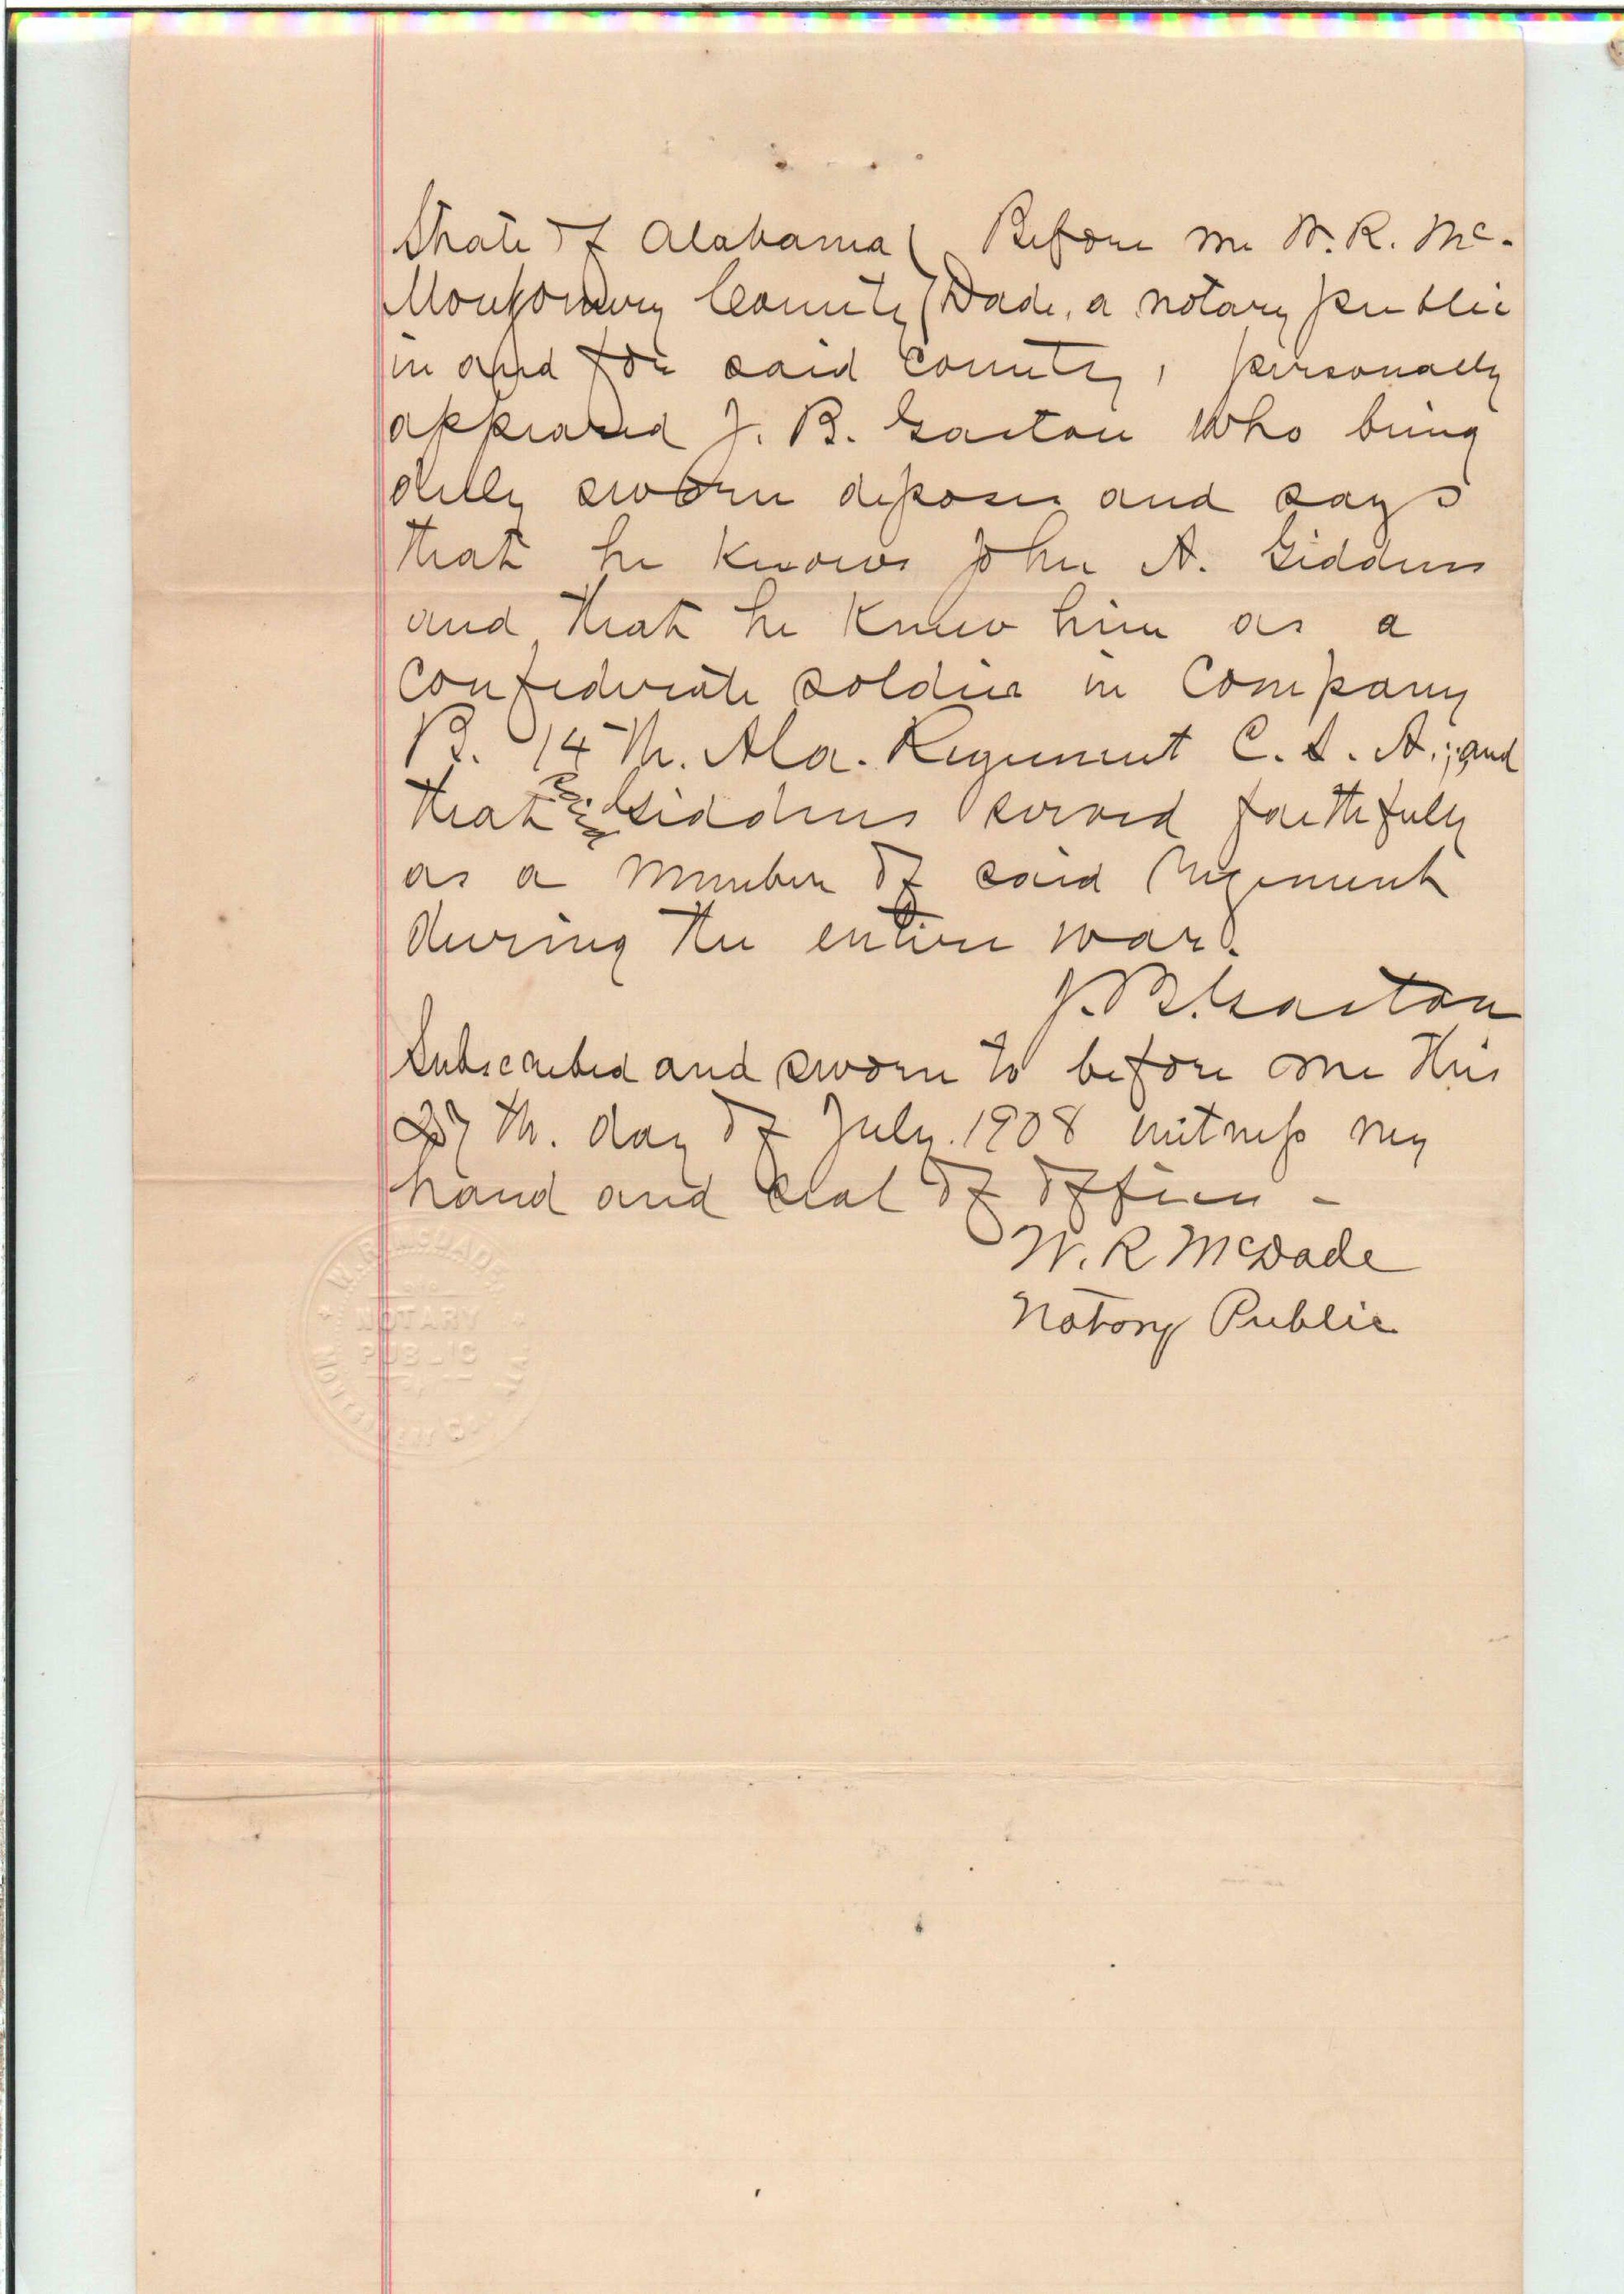 State of Alabama ( Before me W. R. Mc-
Montgomery County ( Dade, a notary public
in and for said county, personally
appeared J. B. Gaston who being
dully sworn deposes and says
that he knows John A. Giddens
and that he knew him as a
confederate soldier in Company
B. 14th. Ala. Regiment C. S. A.; and
that said Giddens served faithfuly
as a member of said Regiment
during the entire war.
J. B. Gaston
Subscribed and sworn to before me this
27th. day of July. 1908 witness my
hand and seal of office -
W. R McDade
Notary Public
NOTARY
PUBLIC